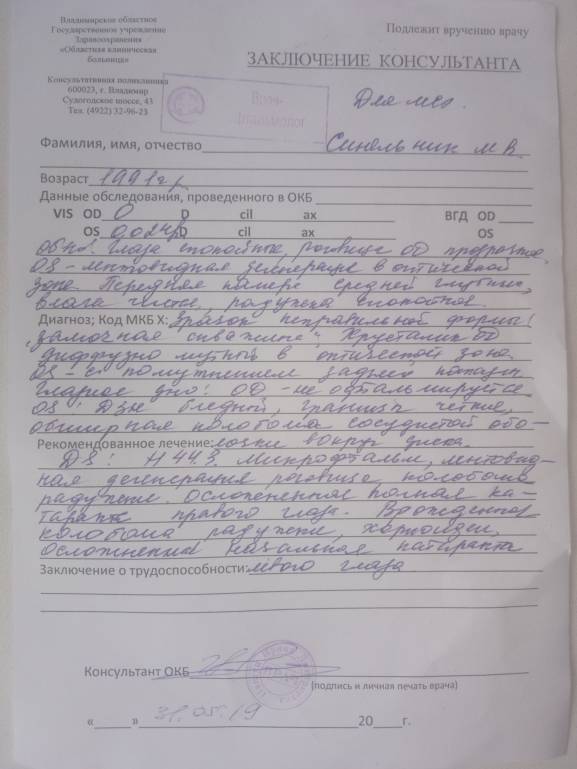 Владимирское областное
Государственное учреждение
Здравоохранения
«Областная клиническая
больница»
Консультативная поликлиника
600023, г. Владимир
Судогодское шоссе, 43
Тел. (4922) 32-96-23
Подлежит вручению врачу
ЗАКЛЮЧЕНИЕ КОНСУЛЬТАНТА
Врач-
Для мсэ.
Фамилия, имя, отчество Синельник М В.
Возраст 1991г.р.
Данные обследования, проведенного в ОКБ
VIS OD 0 D cil ax ВГД OD
OS 0,02 D cil ax OS
Объек. Глаза спокойные, роговица OD прозрачна,
OS - лентовидная дегенерация в оптической
зоне. Передняя камера средней глубины,
влага чистая, радужка
Диагноз; Код МКБ X: Зрачок неправильной формы!
"замочная скважина", Хрусталик OD
диффузно мутный в оптической зоне
OS - с помутнением задней
Глазное дно! OD - не офтальмируется
OS! Дзн бледный, границы четкие,
обширная колобома сосудистой обо-
Рекомендованное лечение: лочки вокруг диска.
DS! H 44.3. Микрофтальм, лентовид-
ная дегенерация роговицы, колобома
радужки. Осложненная полная ка-
таракта правого глаза. Врожденная
колобома радужки, хориоидеи,
осложненная начальная катаракта
Заключение о трудоспособности: левого глаза
Консультант ОКБ
(подпись и личная печать врача)
«     » 31.05.19 20    г.